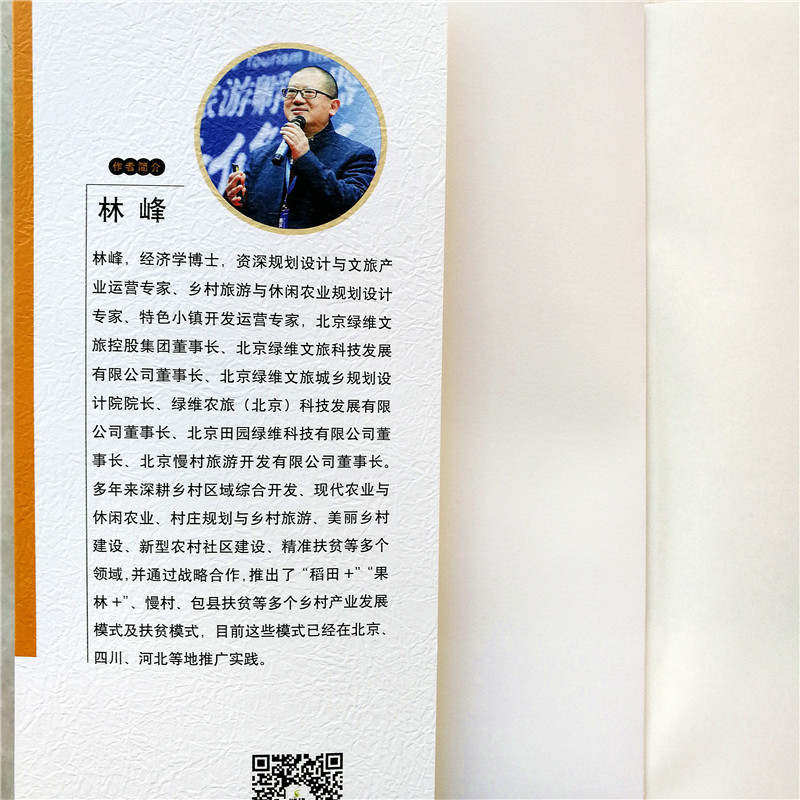 Tourism
旅游
作者简介
林 峰
林峰，经济学博士，资深规划设计与文旅产
业运营专家、乡村旅游与休闲农业规划设计
专家、特色小镇开发运营专家，北京绿维文
旅控股集团董事长、北京绿维文旅科技发展
有限公司董事长、北京绿维文旅城乡规划设
计院院长、绿维农旅（北京）科技发展有限
公司董事长、北京田园绿维科技有限公司董
事长、北京慢村旅游开发有限公司董事长。
多年来深耕乡村区域综合开发、现代农业与
休闲农业、村庄规划与乡村旅游、美丽乡村
建设、新型农村社区建设、精准扶贫等多个
领域,并通过战略合作,推出了“稻田＋”“果
林＋”、慢村、包县扶贫等多个乡村产业发展
模式及扶贫模式，目前这些模式已经在北京、
四川、河北等地推广实践。